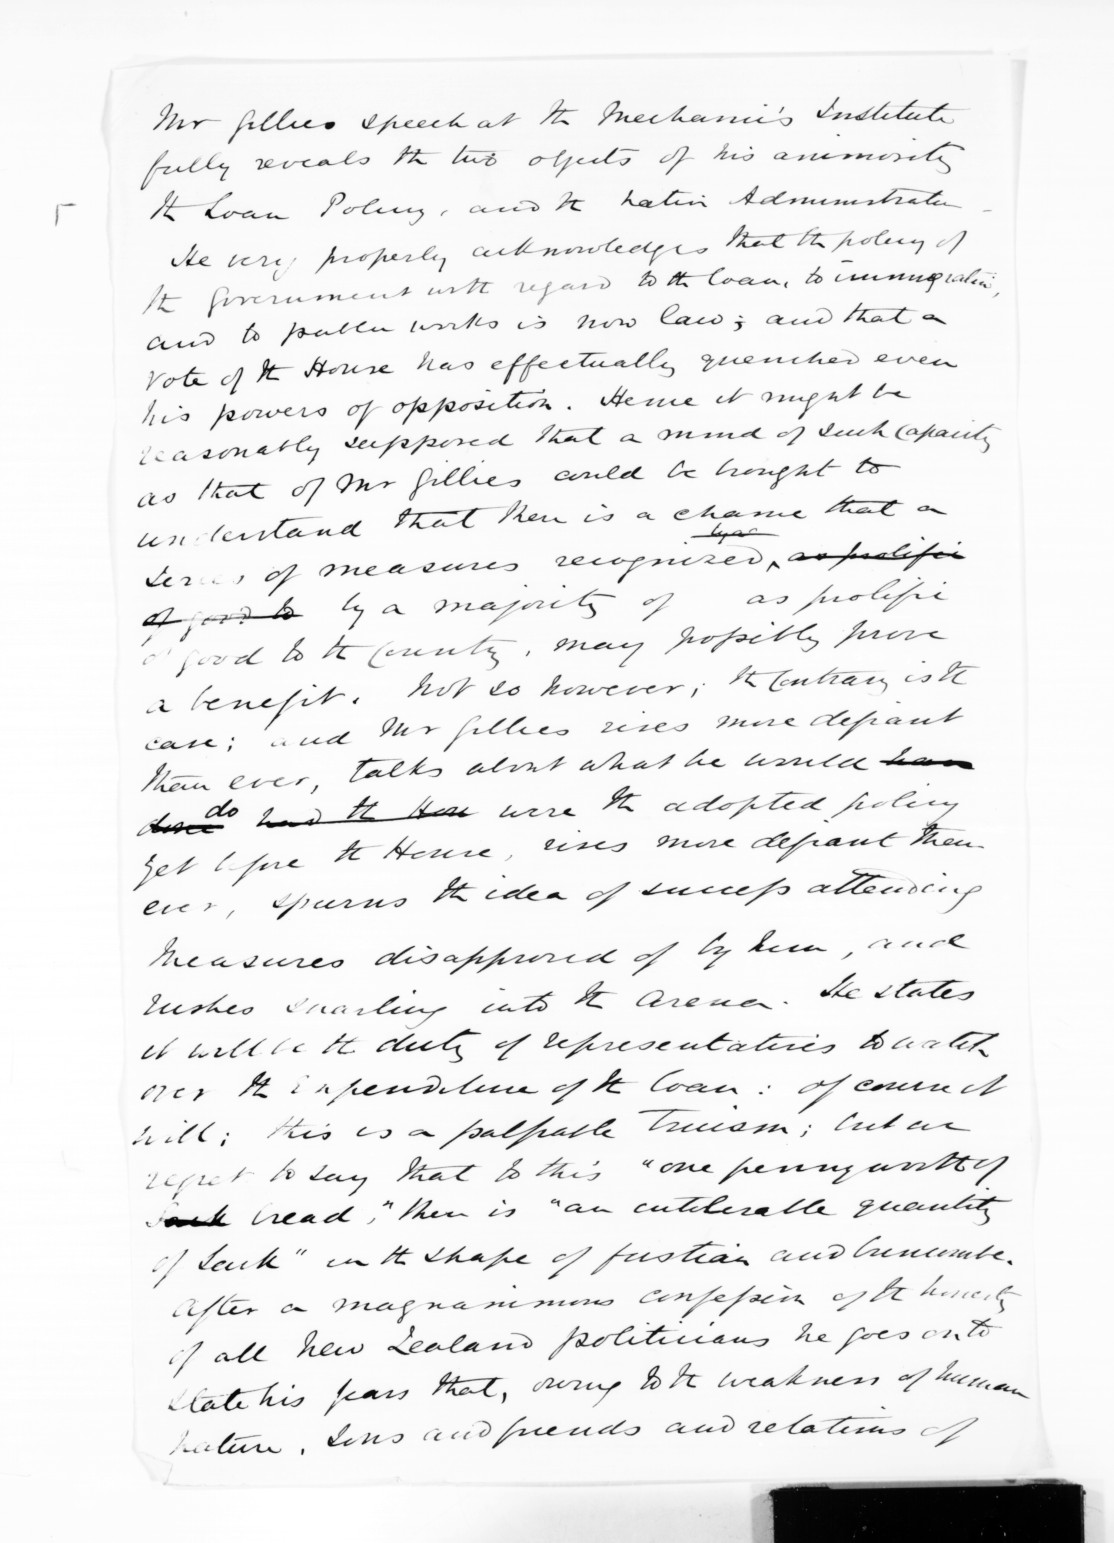 Mr Gillies speech at the Mechanic's Institute
fully reveals the two objects of his animosity
the Loan Policy, and the Native Administration -
He very properly acknowledges that the policy of
the Government with regard to the loan, to immigration,
and to public works is now law; and that a
vote of the House has effectually quenched even
his powers of opposition. Hence it might be
reasonably supposed that a mind of such capacity
as that of Mr Gillies could be brought to
understand that there is a chance that a
series of measures recognized, by a as prolific
of good to by a majority of as prolific
of good to the Country, may possibly prove
a benefit. Not so however; the Contrary is the
case; and Mr Gillies rises more defiant
than ever, talks about what he would have
done do had the House were the adopted policy
yet before the House, rises more defiant then
ever, spurns the idea of success attending
Measures disapproved of by him, and
rushes snarling into the arena. He states
it will be the duty of representatives to watch
over the expenditure of the loan: of course it
will; this is a palpable Truism; but we
regret to say that to this "one pennyworth of
Sack bread," there is "an intolerable quantity
of Sack" in the shape of fustian and buncumbe.
After a magnanimous confession of the honesty
of all New Zealand politicians he goes on to
state his fears that, owing to the weakness of human
nature, Sons and friends and relations of